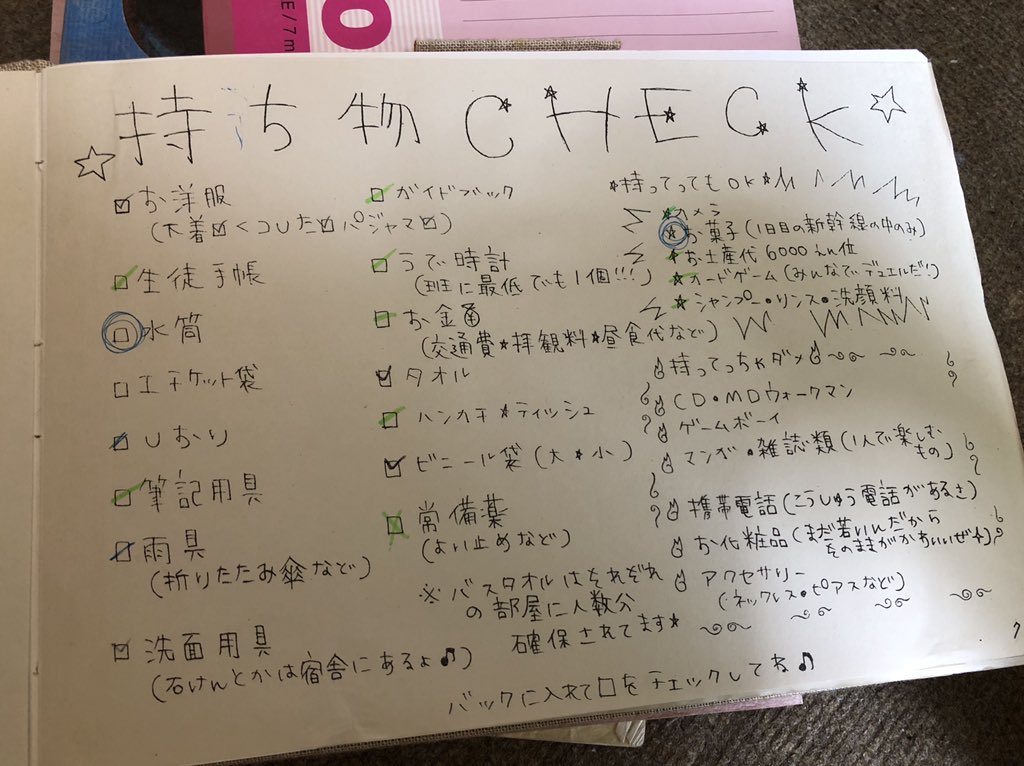 E/7m
持ち物CHECK
お洋服
(下着くつしたパジャマ)
生徒手帳
水筒
エチケット袋
しおり
筆記用具
雨具
(折りたたみ傘など)
洗面用具
(石けんとかは宿舎にあるよ♫)
ガイドブック
うで時計
(班に最低でも1個!!!)
お金
(交通費★拝観料★昼食代など)
タオル
ハンカチ★ティッシュ
ビニール袋(大★小)
常備薬
(よい止めなど)
※バスタオルはそれぞれ
の部屋に人数分
確保されてます★
バックに入れて□をチェックしてね♫
★持ってってもOK★
カメラ
お菓子(1日目の新幹線の中のみ)
お土産代6000えん位
カードゲーム(みんなでデュエルだ!)
シャンプー・リンス・洗顔料
持ってっちゃダメ
CD・MDウォークマン
ゲームボーイ
マンガ・雑誌類(1人で楽しむ
もの)
携帯電話(こうしゅう電話があるさ)
お化粧品(まだ若いんだから
そのままがかわいいぜ★)
アクセサリー
(ネックレス・ピアスなど)
7